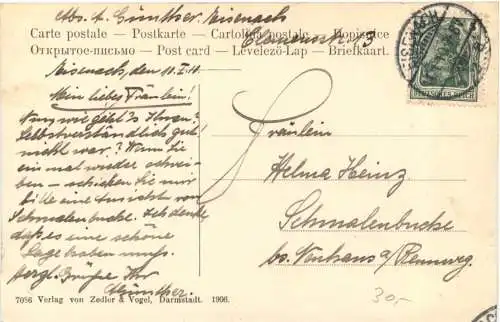 Abs. A. Günther. Eisenach
Carte postale — Postkarte — Cartolina postale — Dopisnice
Открытое-письмо — Post card — Levelező-Lap — Briefkaart.
Eisenach, den 10.I.10.
Mein liebes Fräulein!
Nun, wie geht's Ihnen?
Selbstverständlich gut!
nicht war? Wenn Sie
ein mal wieder schrei-
ben — schicken Sie mir
bitte eine Ansicht von
Schmalenbucke. Ich denke,
daß es eine schöne
Lage haben muß.
Hergl. Grüße Ihr
Günther.
Fräulein
Helma Heinz
Schmalenbucke
bs. Neuhaus a/Rennweg.
DEUTSCHES REICH
30,-
7086 Verlag von Zedler & Vogel, Darmstadt. 1906.